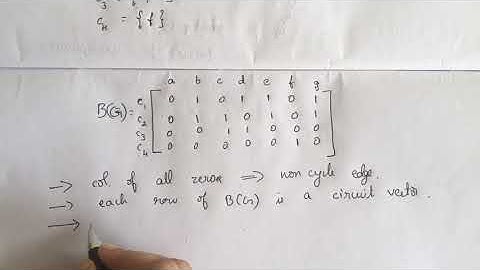 c₄ = {f}
a b c d e f g
B(G) =
c₁ 0 1 0 1 1 0 1
c₂ 0 1 1 0 1 0 1
c₃ 0 0 1 1 0 0 0
c₄ 0 0 0 0 0 1 0
→ col. of all zeros ⇒ non cycle edge.
→ each row of B(G) is a circuit vector.
→